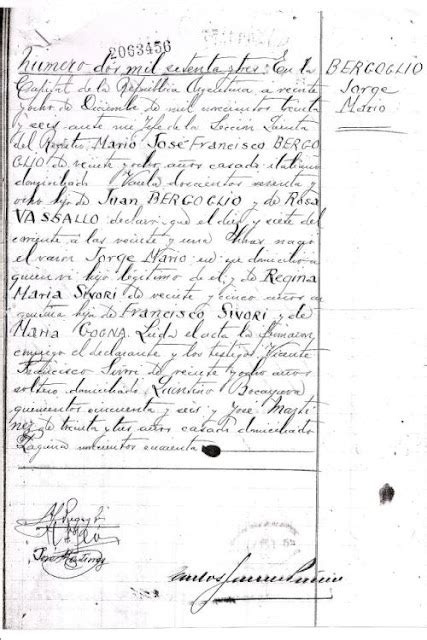 2063456
numero dos mil setenta y tres: En la
Capital de la República Argentina, a veinte
y ocho de Diciembre de mil novecientos treinta
y seis ante mi Jefe de la Sección
del Registro, Mario José Francisco BERGO
GLIO de veinte y ocho años casado italiano
domiciliado Varela doscientos sesenta y
ocho hijo de Juan BERGOGLIO y de Rosa
VASSALLO declaró que el diez y siete del
corriente a las veinte y una horas nació
el varon Jorge Mario en su domicilio a
quien vi hijo legítimo de el y de Regina
Maria SIVORI de veinte y cinco años ar
gentina hija de Francisco SIVORI y de
Maria GOGNA. Leida el acta la firmaron
conmigo el declarante y los testigos Vicente
Francisco Sivori de veinte y ocho años
soltero domiciliado Quintino Bocayuva
quinientos cincuenta y seis y José Marti
nez de treinta y tres años casado domiciliado
Laguna novecientos cincuenta
BERGOGLIO
Jorge
Mario
José Martinez
Carlos